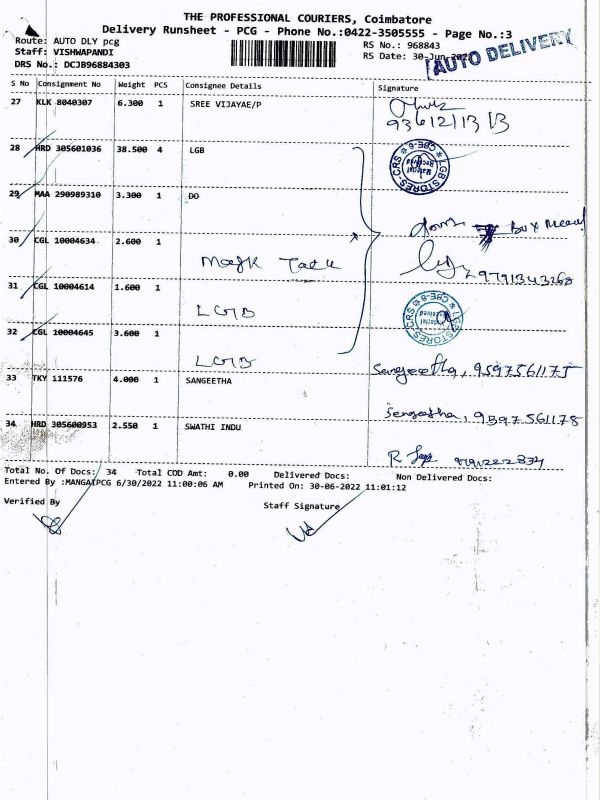 THE PROFESSIONAL COURIERS, Coimbatore
Delivery Runsheet - PCG - Phone No.:0422-3505555 - Page No.:3
Route: AUTO DLY pcg
RS No.: 968843
Staff: VISHWAPANDI
RS Date: 30-Jun-2022
AUTO DELIVERY
DRS No.: DCJB96884303
S No Consignment No Weight PCS Consignee Details Signature
27 KLK 8040307 6.300 1 SREE VIJAYAE/P
28 HRD 305601036 38.500 4 LGB
LGB STORES-CRS CBE-6
Material Received
29 MAA 290989310 3.300 1 DO
30 CGL 10004634 2.600 1
9791343268
31 CGL 10004614 1.600 1
LGB
LGB STORES-CRS CBE-6
32 CGL 10004645 3.600 1
LGB
Sangeetha, 9597561175
33 TKY 111576 4.000 1 SANGEETHA
Sangeetha, 9597561178
34 HRD 305600953 2.550 1 SWATHI INDU
Total No. Of Docs: 34 Total COD Amt: 0.00 Delivered Docs: Non Delivered Docs:
Entered By :MANGAIPCG 6/30/2022 11:00:06 AM Printed On: 30-06-2022 11:01:12
Verified By
Staff Signature